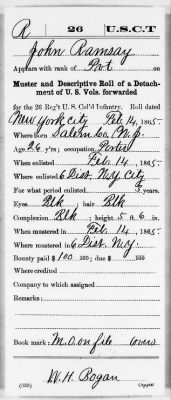 R 26 U.S.C.T
John Ramsay
Appears with rank of Pvt on
Muster and Descriptive Roll of a Detach-
ment of U. S. Vols. forwarded
for the 26 Reg't U. S. Col'd Infantry. Roll dated
New York City Feb. 14, 1865.
Where born Salem Co. N.J.
Age 26 y'rs; occupation Porter
When enlisted Feb. 14, 1865.
Where enlisted 6 Dist. N.Y. City
For what period enlisted 3 years.
Eyes Blk; hair Blk
Complexion Blk; height 5 ft. 6 in.
When mustered in Feb. 14, 1865.
Where mustered in 6 Dist. N.Y.
Bounty paid $100 100; due $ 100
Where credited
Company to which assigned
Remarks:
Book mark: M.D. on file
W. H. Bogan
(339) Copyist.